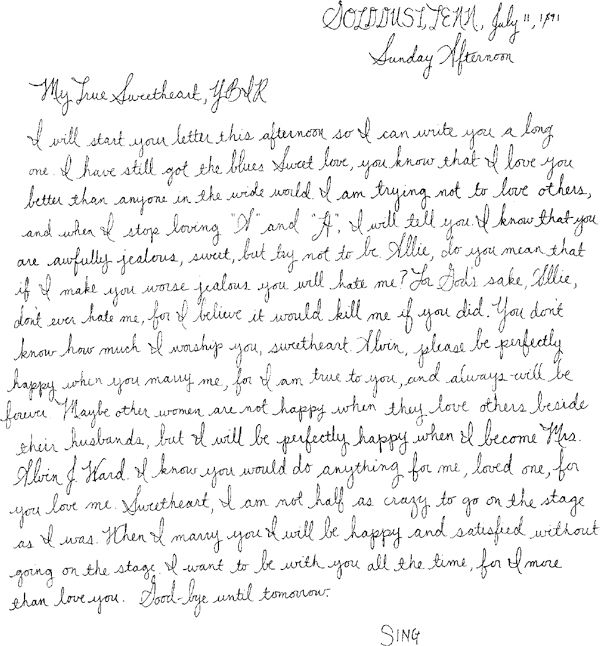 GOLDDUST, TENN., July 11, 1891
Sunday Afternoon
My True Sweetheart,
I will start your letter this afternoon so I can write you a long
one. I have still got the blues Sweet love, you know that I love you
better than anyone in the wide world. I am trying not to love others,
and when I stop loving "N" and "A", I will tell you. I know that you
are awfully jealous, sweet, but try not to be. Allie, do you mean that
if I make you worse jealous you will hate me? For God's sake, Allie,
don't ever hate me, for I believe it would kill me if you did. You don't
know how much I worship you, sweetheart. Alvin, please be perfectly
happy when you marry me, for I am true to you, and always will be
forever. Maybe other women are not happy when they love others beside
their husbands, but I will be perfectly happy when I become Mrs.
Alvin J. Ward. I know you would do anything for me, loved one, for
you love me. Sweetheart, I am not half as crazy to go on the stage
as I was. When I marry you I will be happy and satisfied without
going on the stage. I want to be with you all the time, for I more
than love you. Good-bye until tomorrow.
SING